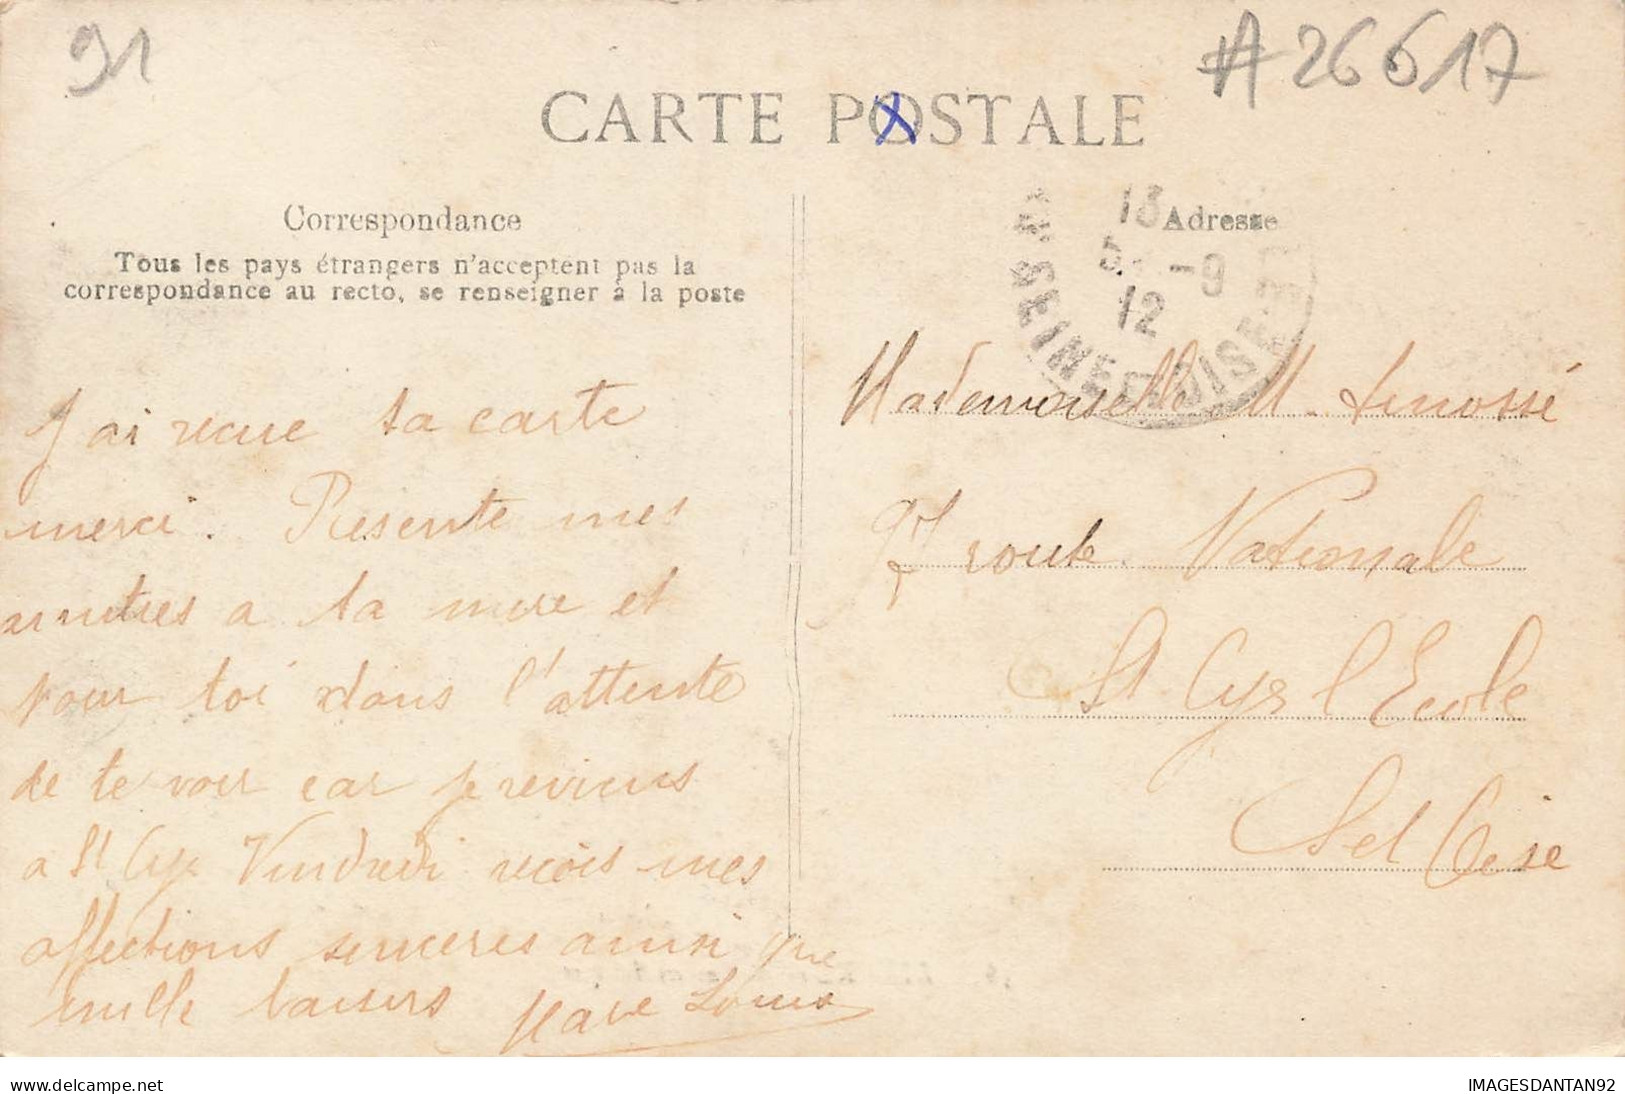 91
#26617
CARTE POSTALE
Correspondance
Tous les pays étrangers n'acceptent pas la
correspondance au recto, se renseigner à la poste
J'ai recue ta carte
merci. Présente mes
amitres a ta mere et
pour toi dans l'attente
de te voir car je reviens
a St Cyr Vendredi recois mes
affections sinceres ainsi que
mille baisers Marie Louise
Adresse
13 -9
12
SEINE-ET-OISE
Mademoiselle M. Linossié
97 route Nationale
St Cyr l'Ecole
Set Oise
delcampe.net
IMAGESDANTAN92